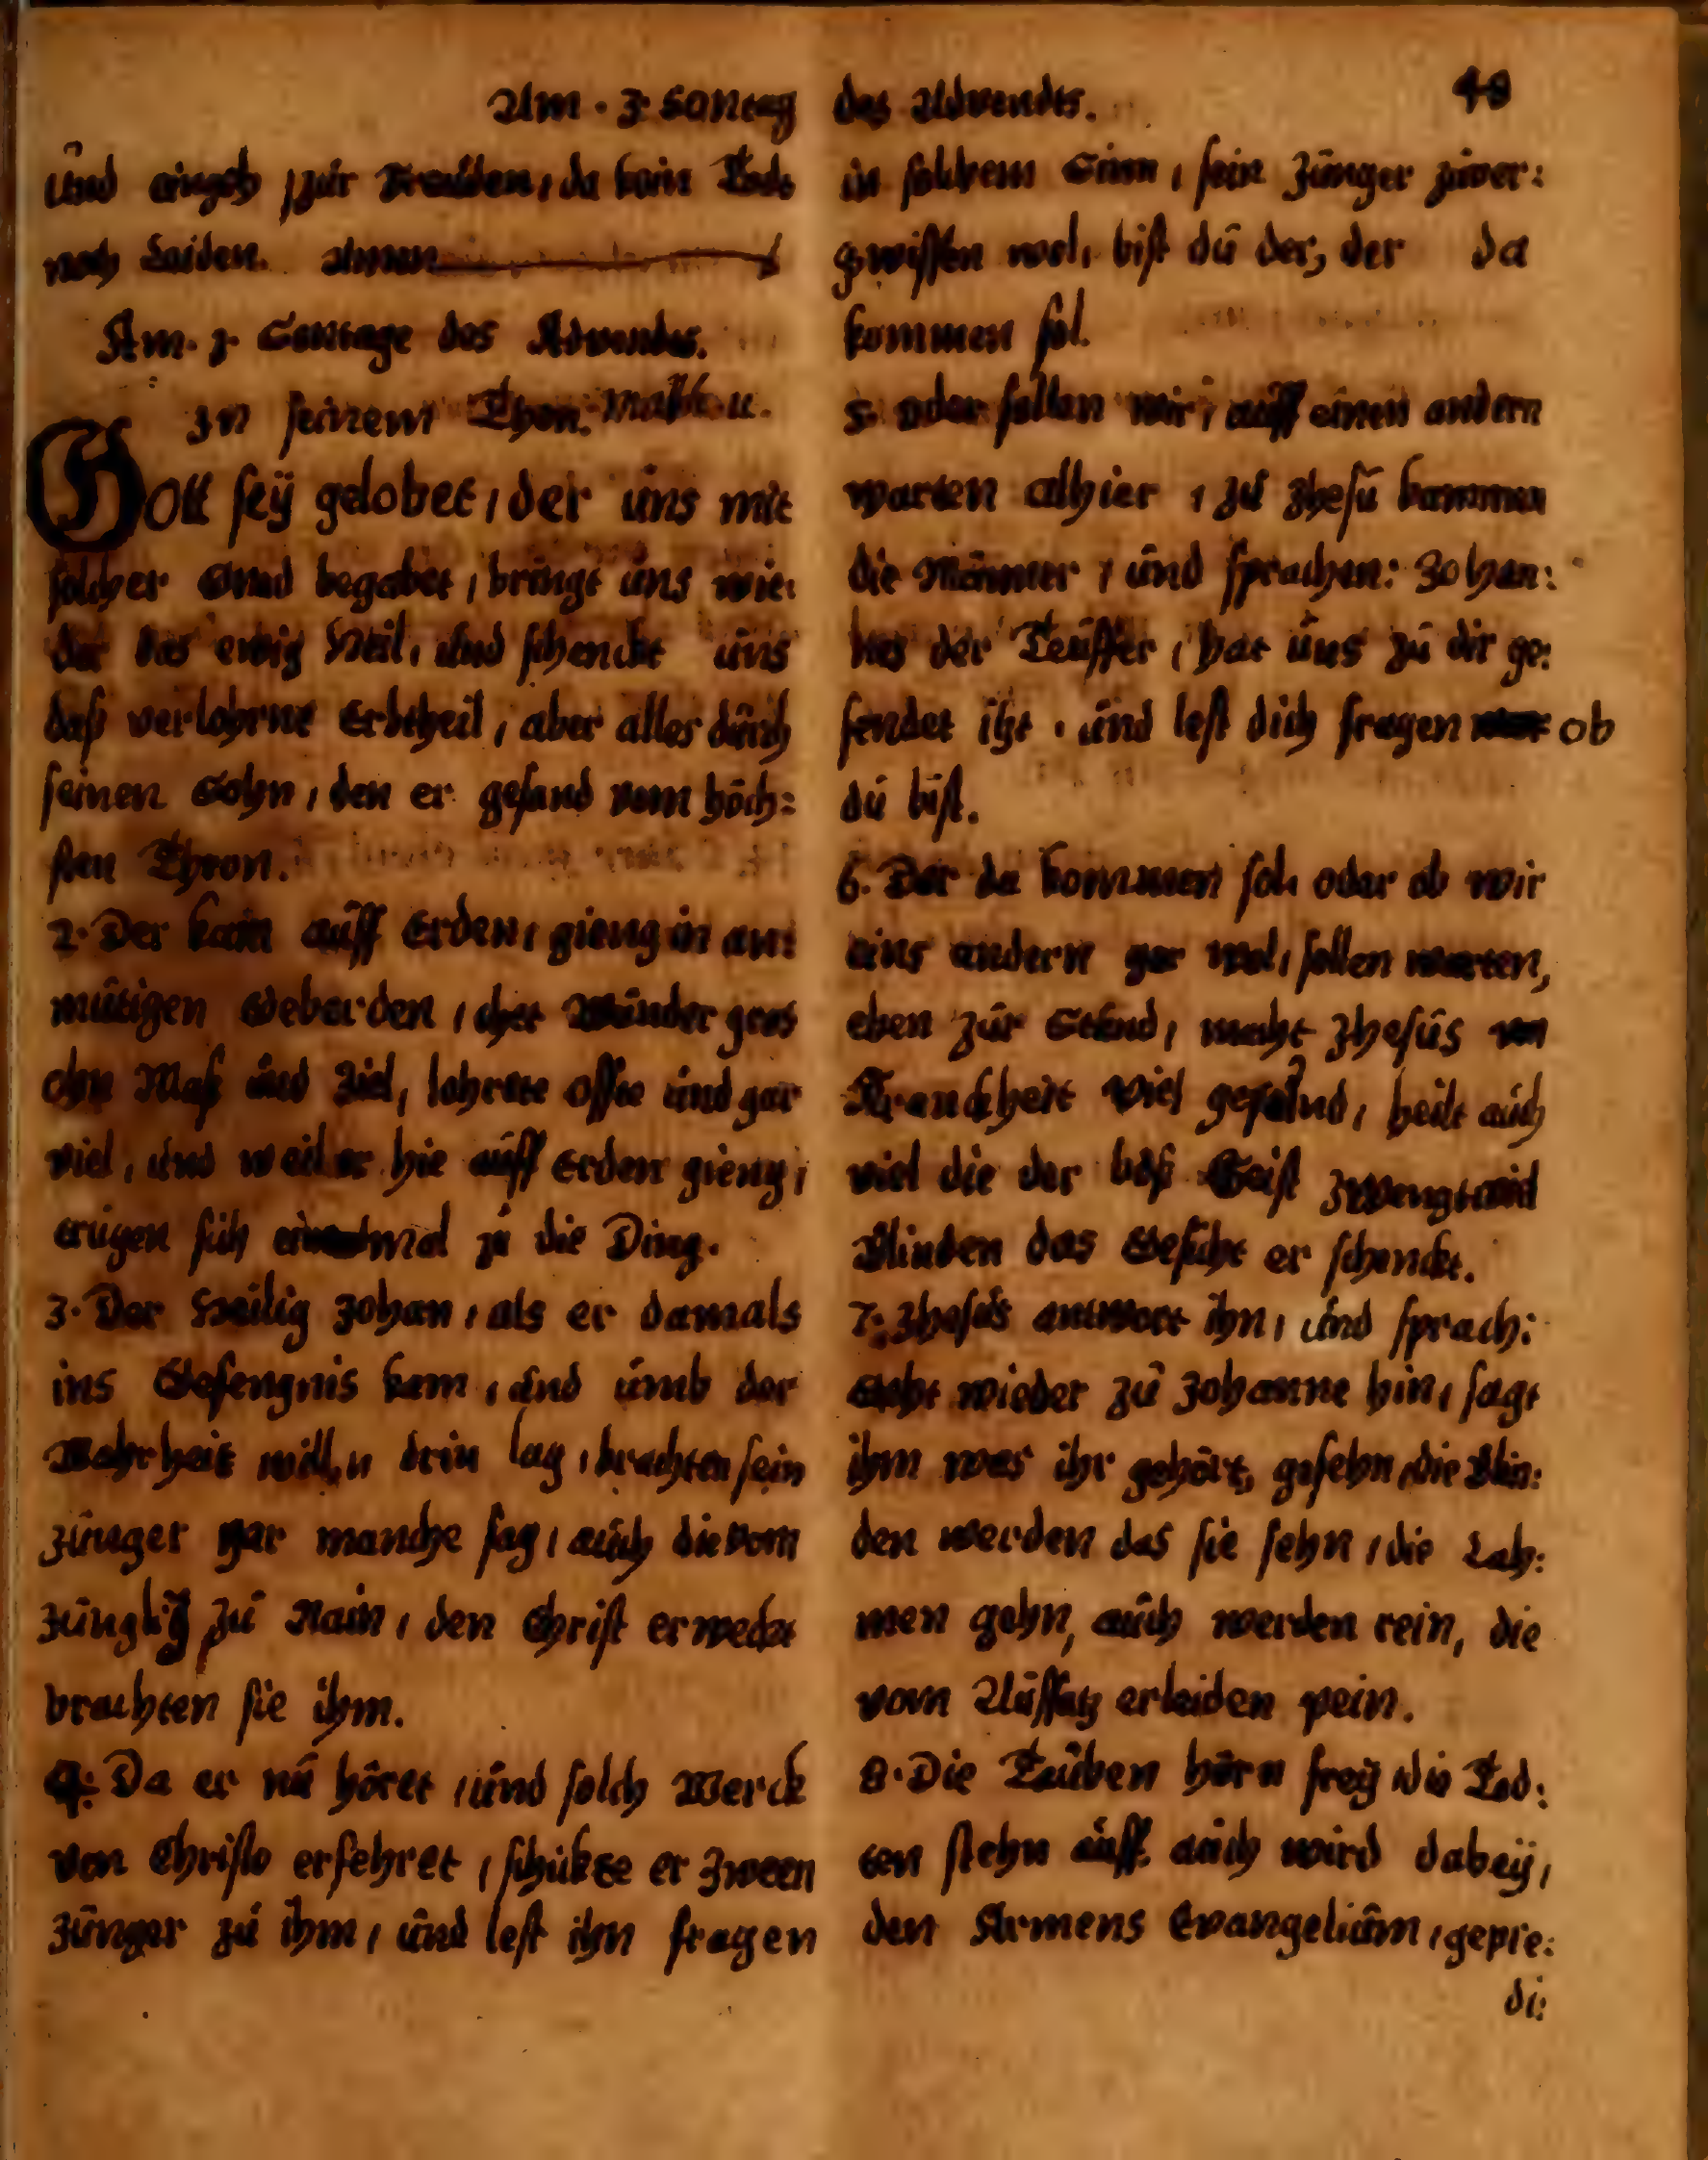 Am. 3. Sontag
und eingeh zur Freüden, da kein Tods
noch Leiden. Amen
Am. 3. Sontage des Advendes.
In seinem Thon. Matth. 11.
Gott seÿ gelobet, der uns mit
solcher Gnad begabet, bringt uns wie:
der das ewig Heil, und schenckt uns
daß verlohrne Erbtheil, aber alles durch
seinen Sohn, den er gesand vom höch:
sten Thron.
2. Der kam auff Erden, gieng in an:
mütigen Geberden, thet Wunder gros
ohn Maß und Ziel, lehrete offte und gar
viel, und weil er hie auff Erden gieng,
erügen sich einmal zu die Ding.
3. Der Heilig Johan, als er damals
ins Gefengnis kam, und umb der
Wahrheit willn drin lag, brachten sein
Jünger gar manche sag, auch die vom
Jüngling zu Nain, den Christ erweckt
brachten sie ihm.
4. Da er nu höret, und solch Werck
von Christo erfehret, schickte er Zween
Jünger zu ihm, und lest ihn fragen
des Advendes. 48
in solchem Sinn, sein Jünger zuver:
gwissen wol, bist du der, der da
kommen sol.
5. oder sollen wir, auff einen andern
warten alhier, zu Jhesu kammen
die Männer, und sprachen: Johan:
nes der Teuffer, hat uns zu dir ge:
sendet itzt, und lest dich fragen ob
du bist.
6. Der da kommen sol, oder ob wir
eins andern gar wol, sollen warten,
eben zur Stund, macht Jhesus von
Kranckheit viel gesund, heilt auch
viel die der böß Geist zwengt, viel
Blinden das Gesicht er schenckt.
7. Jhesus antwort ihn, und sprach:
Geht wieder zu Johanne hin, sagt
ihm was ihr gehört, gesehn, die Blin:
den werden das sie sehn, die Lah:
men gehn, auch werden rein, die
vom Aussatz erleiden pein.
8. Die Tauben hörn freÿ, die Tod:
ten stehn auff, auch wird dabeÿ,
den Armens Evangelium, gepre:
di: